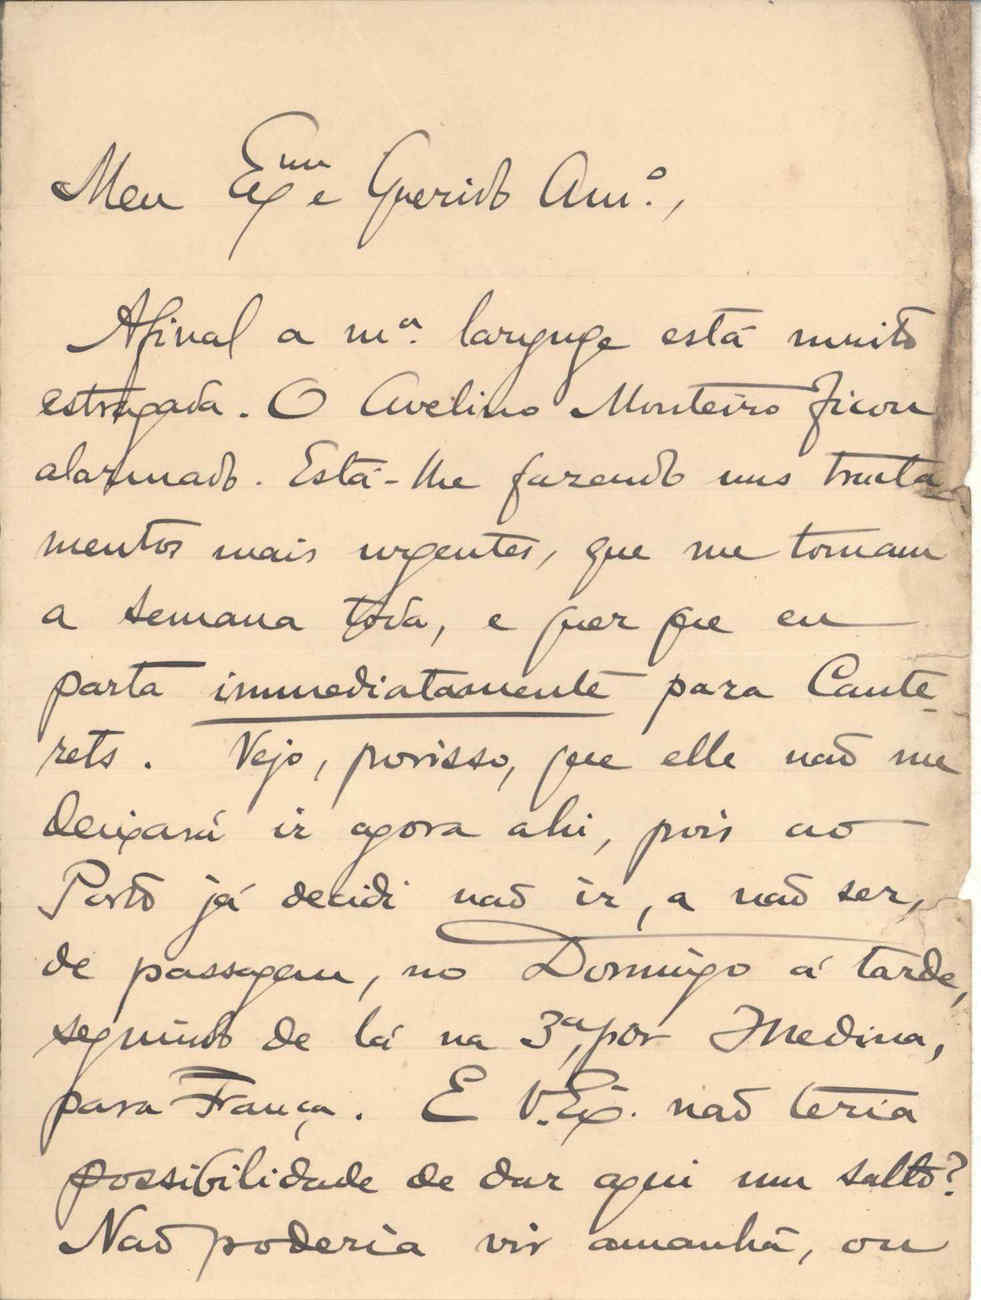 Meu Exmo e Querido Am.º,
Afinal a m.ª larynge está muito
estragada. O Avelino Monteiro ficou
alarmado. Está-me fazendo uns tracta
mentos mais urgentes, que me tomam
a semana toda, e quer que eu
parta immediatamente para Caute-
rets. Vejo, porisso, que elle não me
deixará ir agora ahi, pois ao
Porto já decidi não ir, a não ser,
de passagem, no Domingo á tarde,
seguindo de lá na 3ª, por Medina,
para França. E V. Ex. não teria
possibilidade de dar aqui um salto?
Não poderia vir amanhã, ou